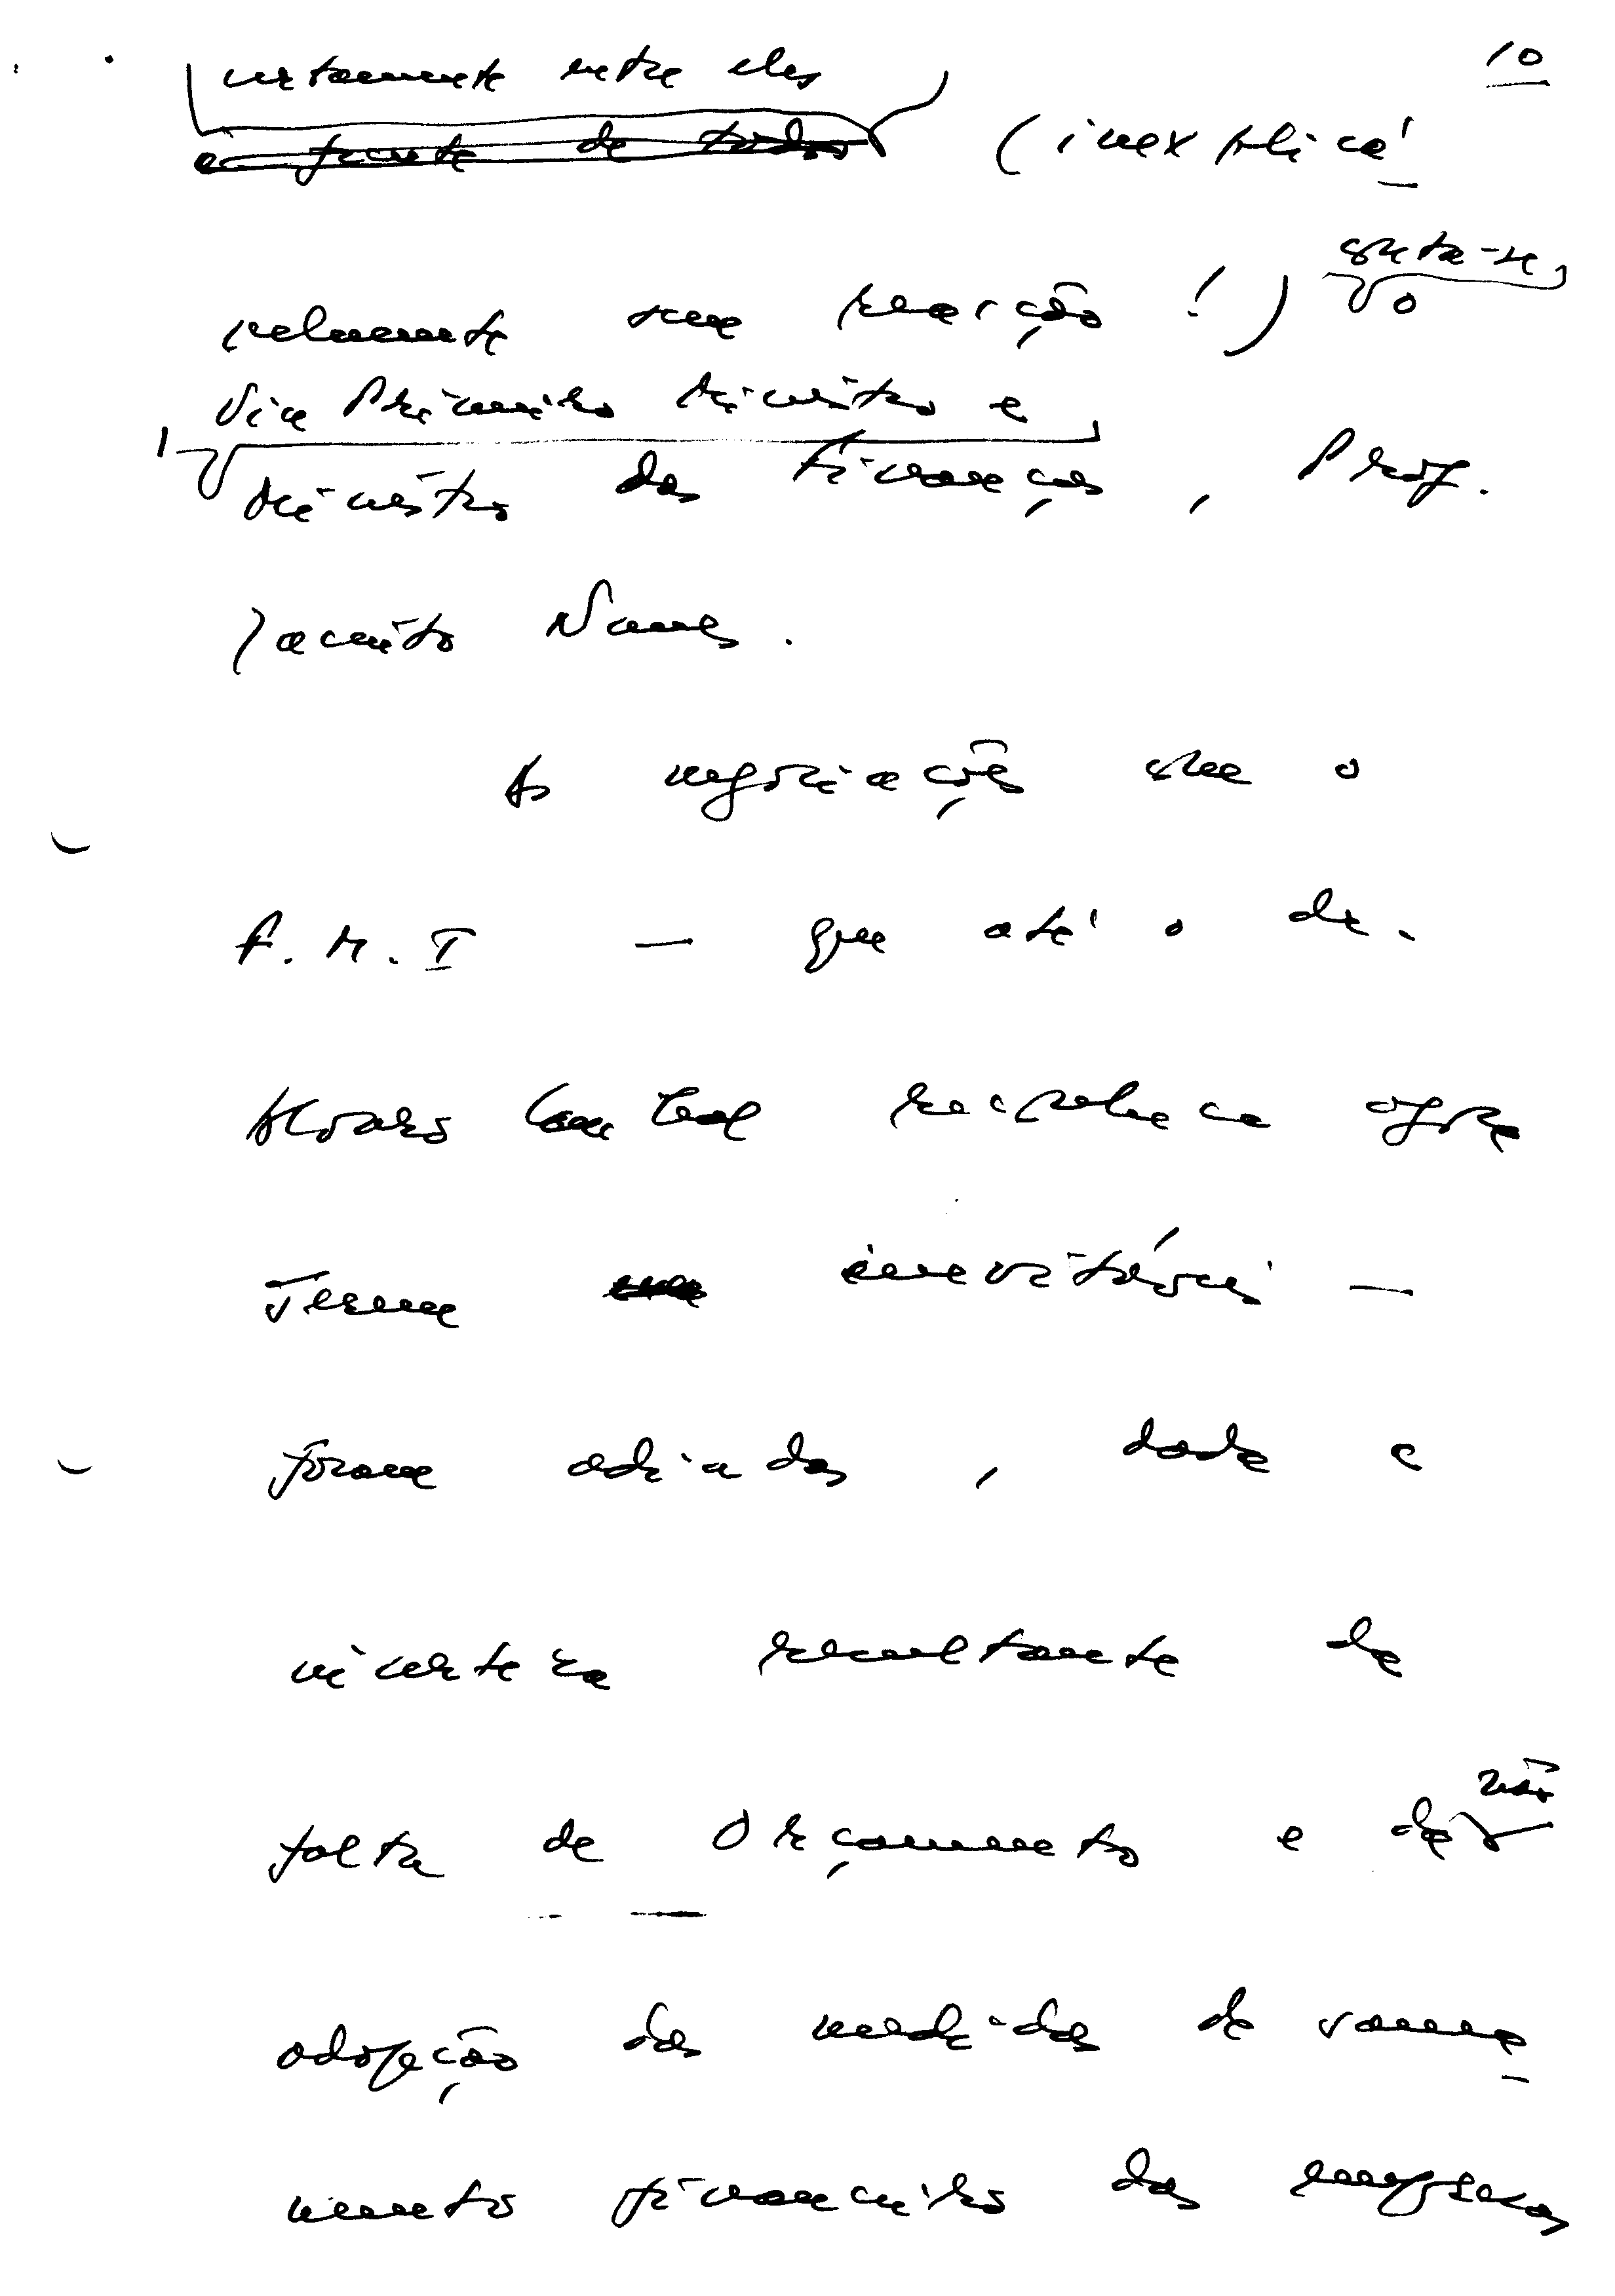 10
certamente entre eles
e frente de todos (inexplicá
velmente sem reacção!) conta-se o
Vice Primeiro Ministro e
Ministro das Finanças, Prof.
Jacinto Nunes.
As negociações com o
F.M.I — que até o dr.
Álvaro Cunhal reconhece agora
serem inevitáveis —
foram adiadas, dada a
incerteza resultante da
falta de Orçamento e da não
adopção das medidas de sanea
mento financeiro das empresas